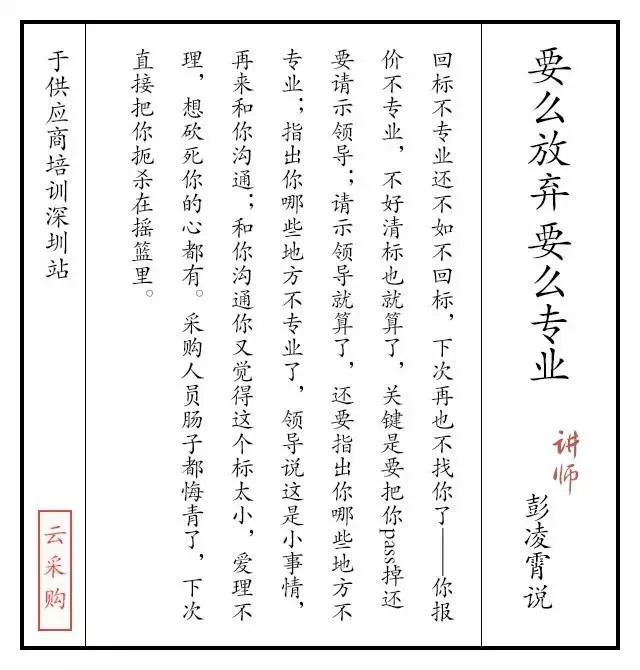 要么放弃要么专业
讲师
彭凌霄说
回标不专业还不如不回标，下次再也不找你了——你报
价不专业，不好清标也就算了，关键是要把你pass掉还
要请示领导；请示领导就算了，还要指出你哪些地方不
专业；指出你哪些地方不专业了，领导说这是小事情，
再来和你沟通；和你沟通你又觉得这个标太小，爱理不
理，想砍死你的心都有。采购人员肠子都悔青了，下次
直接把你扼杀在摇篮里。
于供应商培训深圳站
云采购